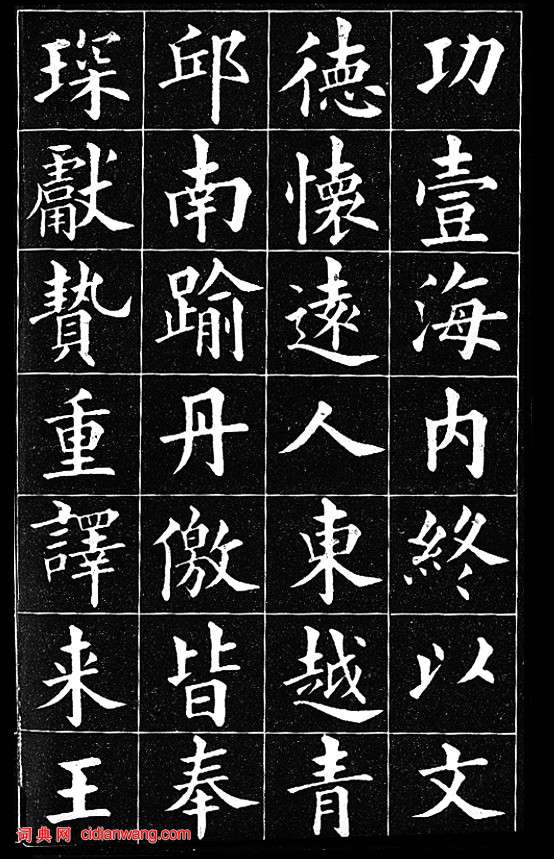 功壹海内終以文
德懷遠人東越青
邱南踰丹儌皆奉
琛獻贄重譯来王
词典网 cidianwang.com